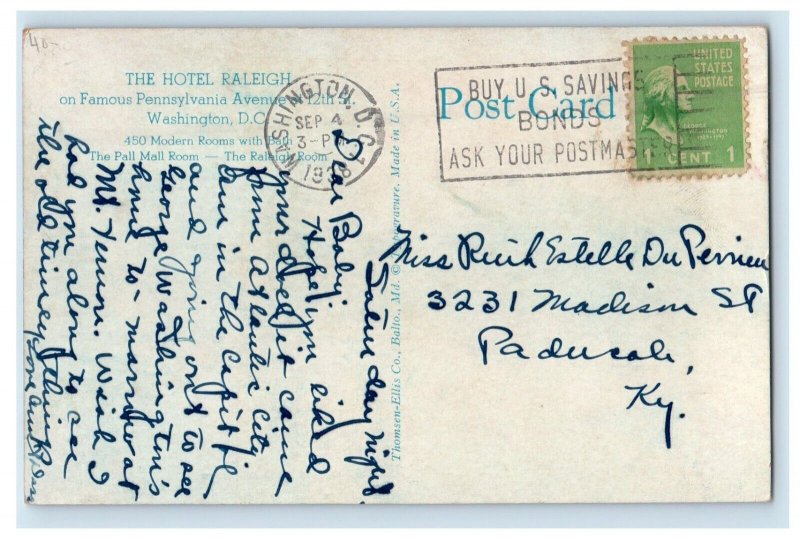 40-
THE HOTEL RALEIGH
on Famous Pennsylvania Avenue at 12th St.
Washington, D.C.
450 Modern Rooms with Bath
The Pall Mall Room — The Raleigh Room
WASHINGTON, D.C.
SEP 4
3-PM
1938
BUY U.S. SAVINGS
BONDS
ASK YOUR POSTMASTER
Post Card
UNITED
STATES
POSTAGE
GEORGE
WASHINGTON
1789-1797
1 CENT 1
Thomsen-Ellis Co., Balto., Md. Made in U.S.A.
Saturday night.
Dear Baby:
Hope you liked
your doll it came
from Atlantic City.
Am in the Capitol
and going out to see
George Washington's
home to-morrow at
Mt. Vernon. Wish I
had you along to see
the old timey things
Love Aunt
Miss Ruth Estelle Du Perrieu
3231 Madison St
Paducah,
Ky.